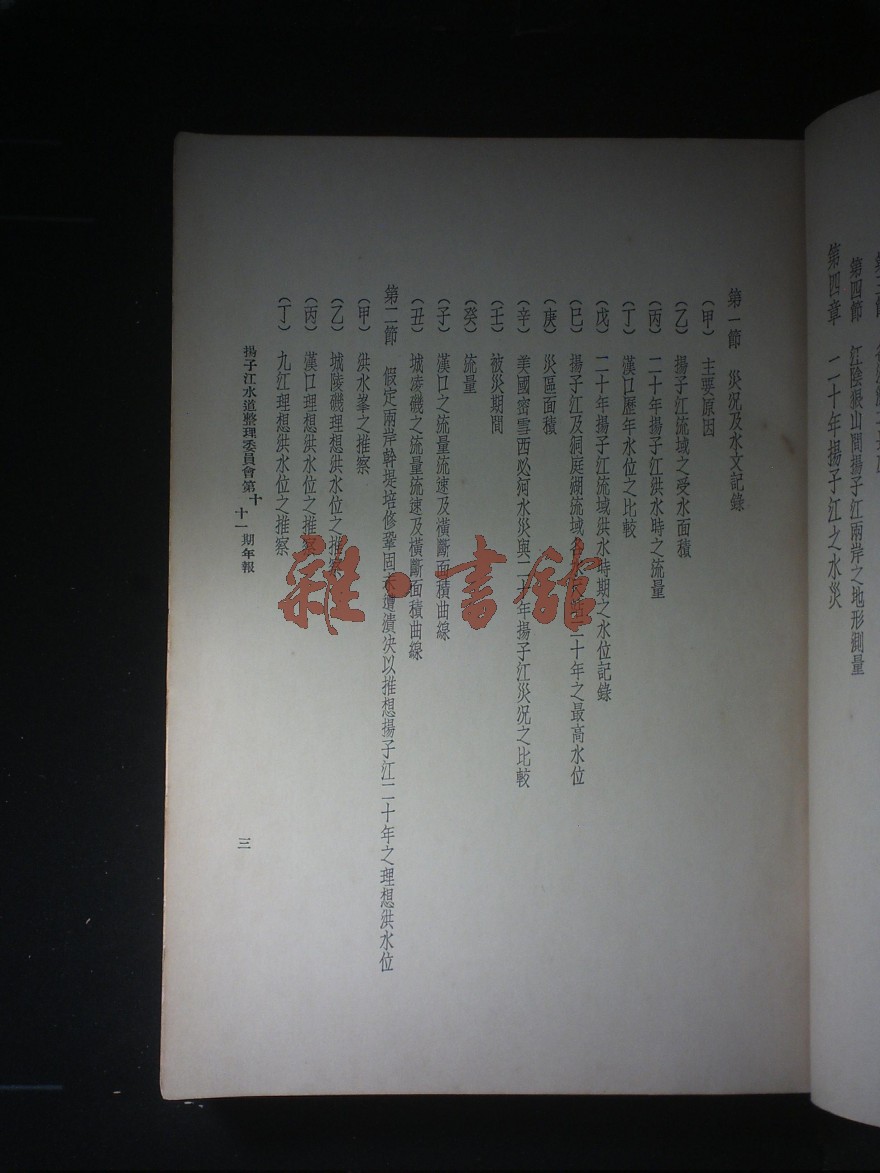 第四節 江陰狼山間揚子江兩岸之地形測量
第四章 二十年揚子江之水災
第一節 災況及水文記錄
(甲) 主要原因
(乙) 揚子江流域之受水面積
(丙) 二十年揚子江洪水時之流量
(丁) 漢口歷年水位之比較
(戊) 二十年揚子江流域洪水時期之水位記錄
(巳) 揚子江及洞庭湖流域 二十年之最高水位
(庚) 災區面積
(辛) 美國密雪西必河水災與二十年揚子江災況之比較
(壬) 被災期間
(癸) 流量
(子) 漢口之流量流速及橫斷面積曲線
(丑) 城陵磯之流量流速及橫斷面積曲線
第二節 假定兩岸幹堤培修鞏固未遭潰決以推想揚子江二十年之理想洪水位
(甲) 洪水峯之推察
(乙) 城陵磯理想洪水位之推察
(丙) 漢口理想洪水位之推察
(丁) 九江理想洪水位之推察
揚子江水道整理委員會第十 十一期年報
三
雜·書館